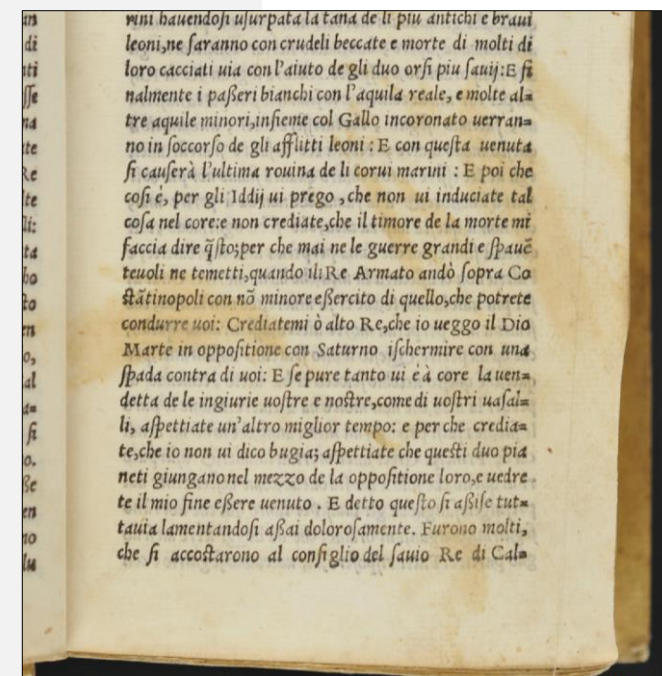 an
di
nti
sse
na
te
Re
ste
li:
ta
ho
to
en
o,
al
a=
si
o.
ße
en
no
lu
rini hauendosi usurpata la tana de li piu antichi e braui
leoni, ne faranno con crudeli beccate e morte di molti di
loro cacciati uia con l'aiuto de gli duo orsi piu sauij: E fi
nalmente i paßeri bianchi con l'aquila reale, e molte al=
tre aquile minori, insieme col Gallo incoronato uerran=
no in soccorso de gli afflitti leoni : E con questa uenuta
si causerà l'ultima rouina de li corui marini : E poi che
cosi é, per gli Iddij ui prego , che non ui induciate tal
cosa nel core: e non crediate, che il timore de la morte mi
faccia dire q̃sto; per che mai ne le guerre grandi e spauẽ
teuoli ne temetti, quando il Re Armato andò sopra Co
stãtinopoli con nõ minore eßercito di quello, che potrete
condurre uoi: Crediatemi ò alto Re, che io ueggo il Dio
Marte in oppositione con Saturno ischermire con una
spada contra di uoi: E se pure tanto ui é à core la uen=
detta de le ingiurie uostre e nostre, come di uostri uasal=
li, aspettiate un'altro miglior tempo: e per che credia=
te, che io non ui dico bugia; aspettiate che questi duo pia
neti giungano nel mezzo de la oppositione loro, e uedre
te il mio fine eßere uenuto . E detto questo si aßise tut=
tauia lamentandosi aßai dolorosamente. Furono molti,
che si accostarono al consiglio del sauio Re di Cal=